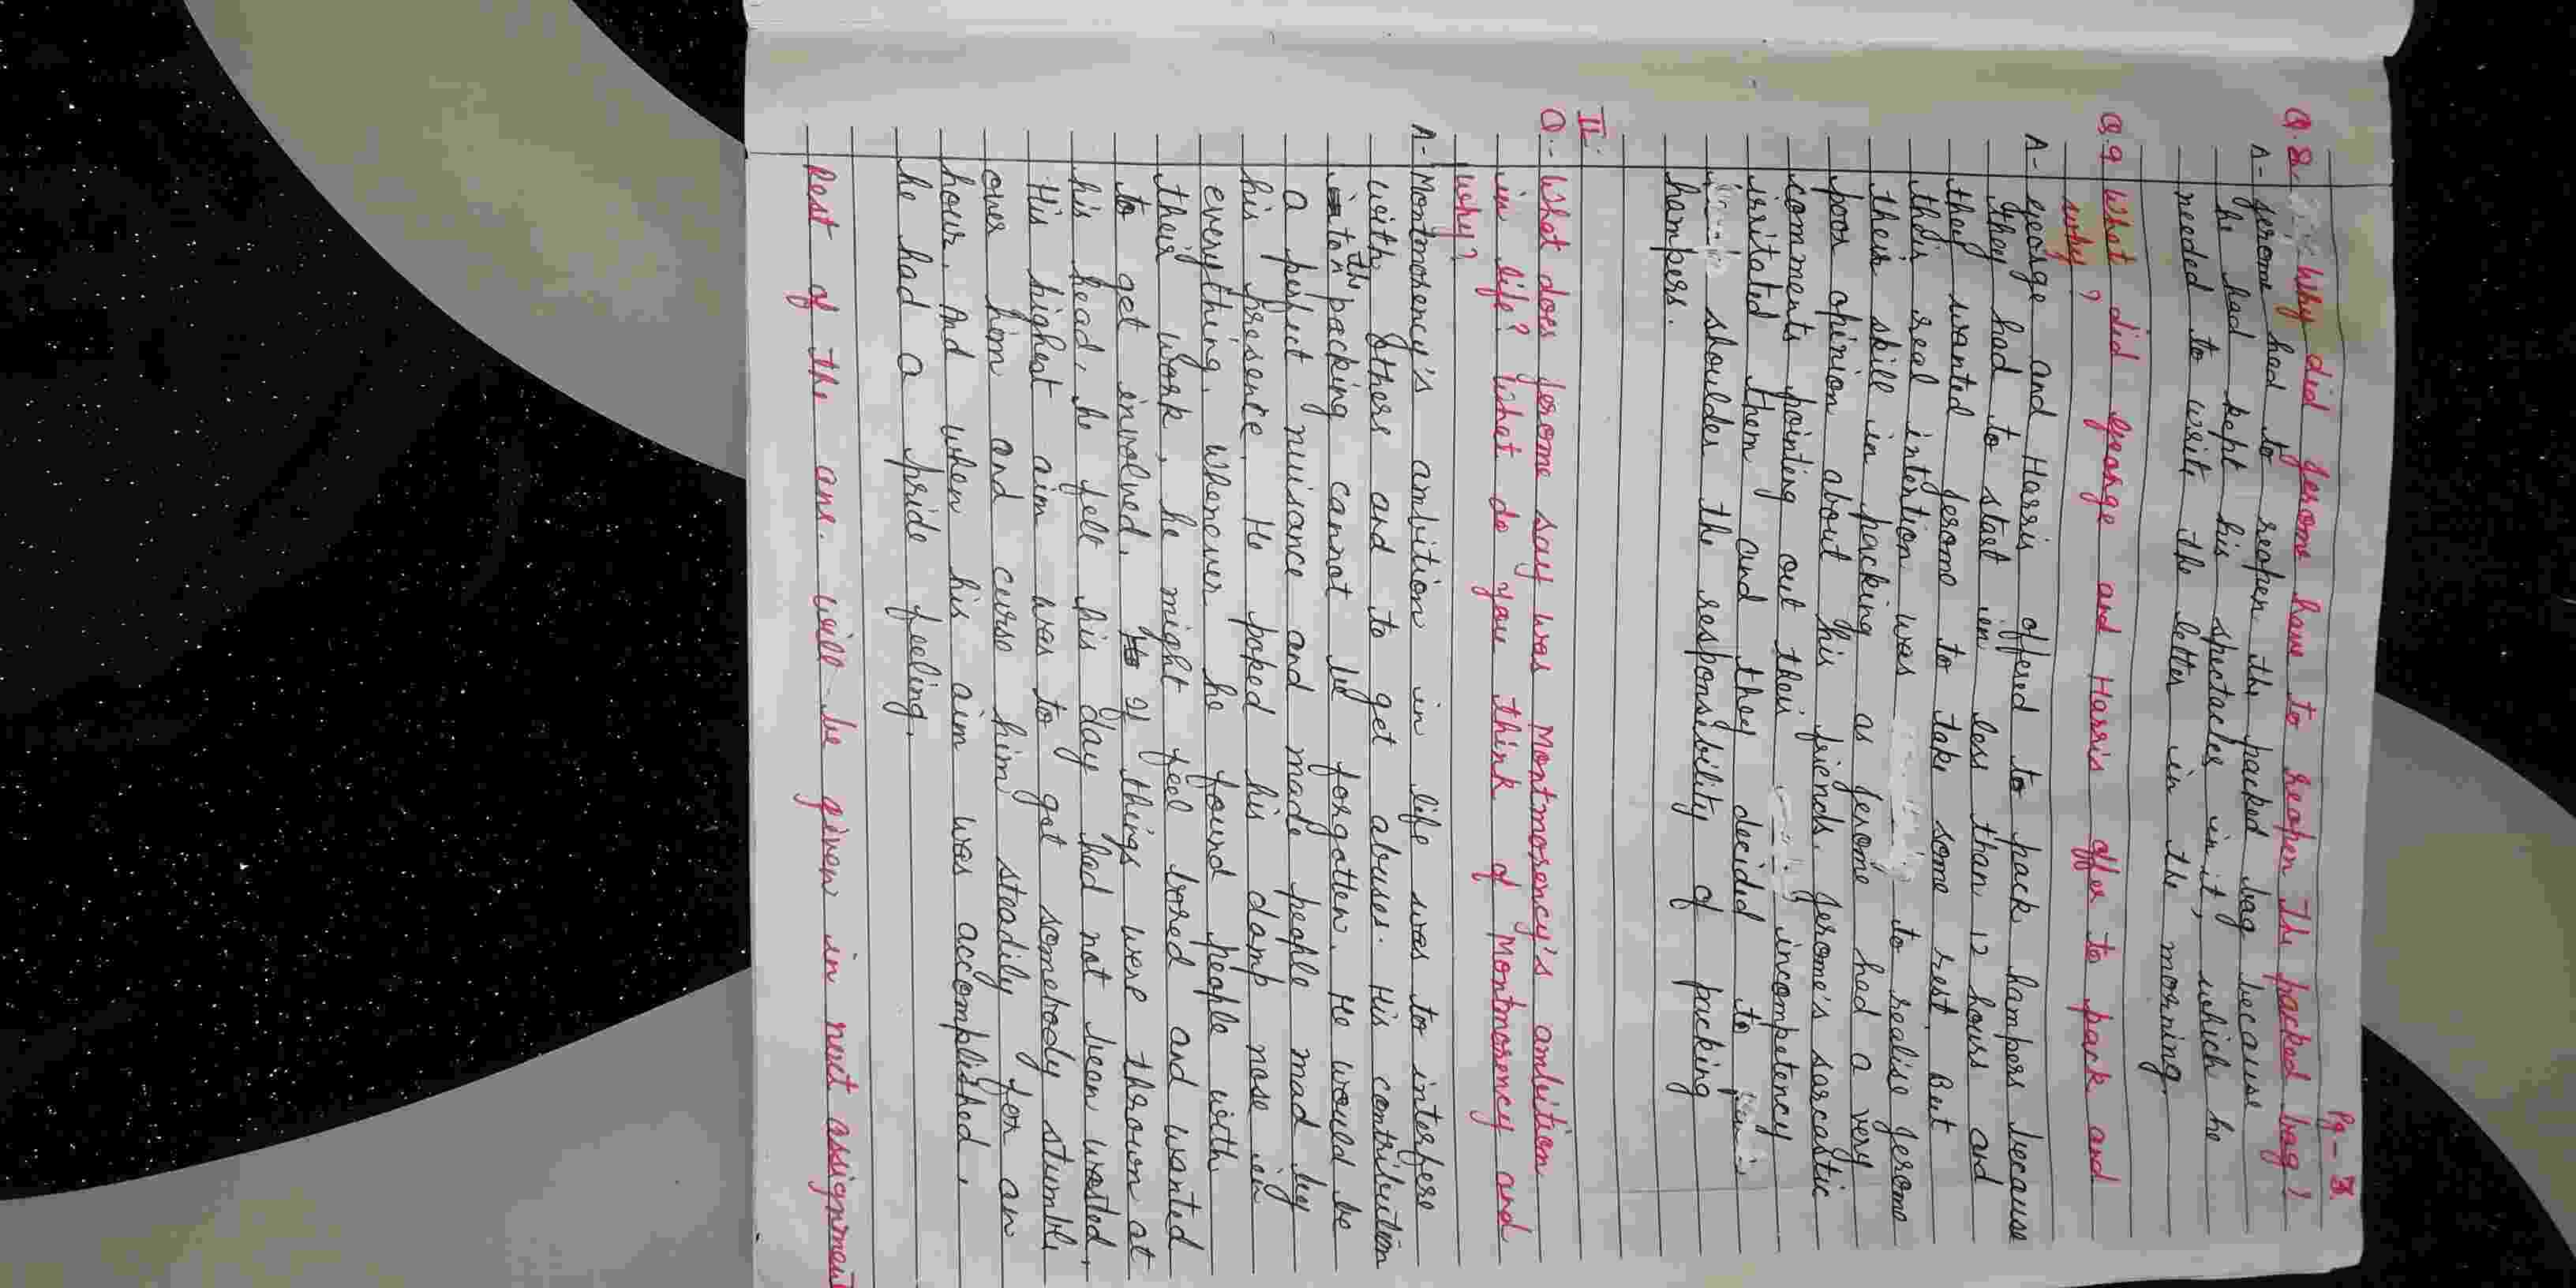 Pg - 3
Q.8 Why did Jerome have to reopen The packed bag?
A- Jerome had to reopen the packed bag because
he had kept his spectacles in it, which he
needed to write the letter in the morning.
Q.9 What did George and Harris offer to pack and
why?
A- George and Harris offered to pack hampers because
they had to start in less than 12 hours and
they wanted Jerome to take some rest. But
their real intention was to realise Jerome
their skill in packing as Jerome had a very
poor opinion about his friends. Jerome's sarcastic
comments pointing out their incompetency
irritated them and they decided to
shoulder the responsibility of packing
hampers.
II.
Q.- What does Jerome say was Montmorency's ambition
in life? What do you think of Montmorency and
why?
A- Montmorency's ambition in life was to interfere
with others and to get abuses. His contribution
to the packing cannot be forgotten. He would be
a perfect nuisance and made people mad by
his presence. He poked his damp nose in
everything. Whenever he found people with
their work, he might feel bored and wanted
to get involved. If things were thrown at
his head, he felt his day had not been wasted.
His highest aim was to get somebody stumble
over him and curse him steadily for an
hour. And when his aim was accomplished,
he had a pride feeling.
Rest of the ans. will be given in next assignment